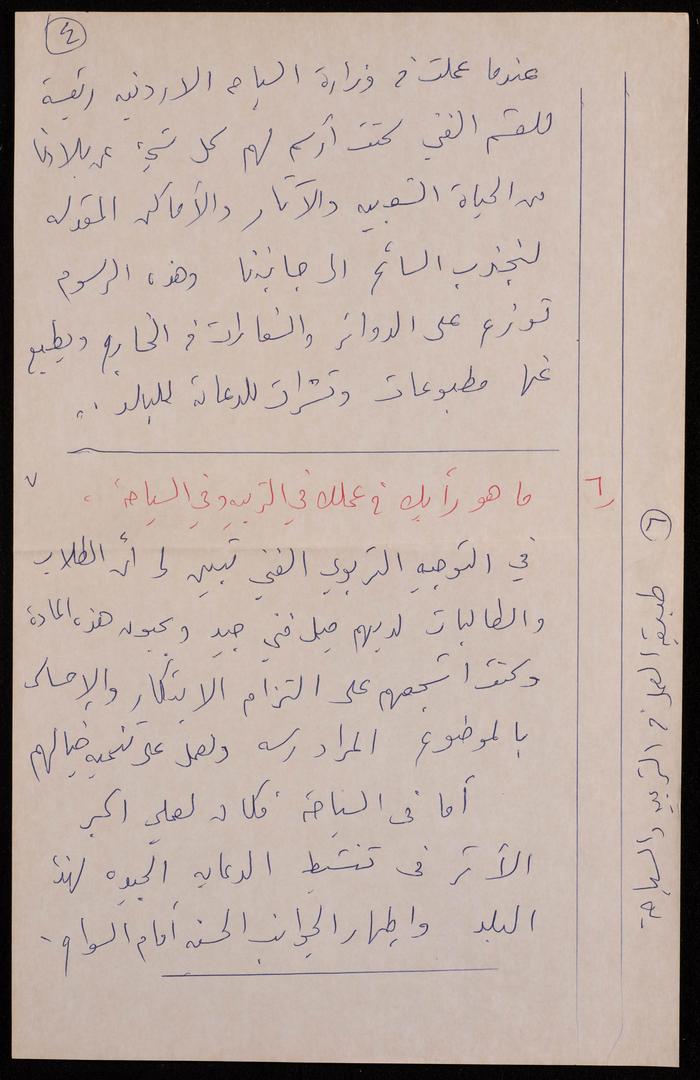 ٤
عندما عملت في وزارة السياحه الاردنيه رئيسة
للقسم الفني كنت أرسم لهم كل شيء عن بلادنا
من الحياة الشعبيه والآثار والأماكن المقدسه
لنجذب السائح الى جانبنا وهذه الرسوم
توزع على الدوائر والسفارات في الخارج ويطبع
عنها مطبوعات ونشرات للدعاية للبلد ..
٦/ ما هو رأيك في عملك في التربيه وفي السياحة .
في التوجيه التربوي الفني تبين لي أن الطلاب
والطالبات لديهم ميل فني جيد ويحبون هذه المادة
وكنت اشجعهم على التزام الابتكار والإحساس
بالموضوع المراد رسمه ونعمل على تنمية خيالهم
أما في السياحة فكان لعملي اكبر
الأثر في تنشيط الدعايه الجيده لهذا
البلد واظهار الجوانب الحسنه أمام السواح .
٦ طبيعة العمل في التربيه والسياحة